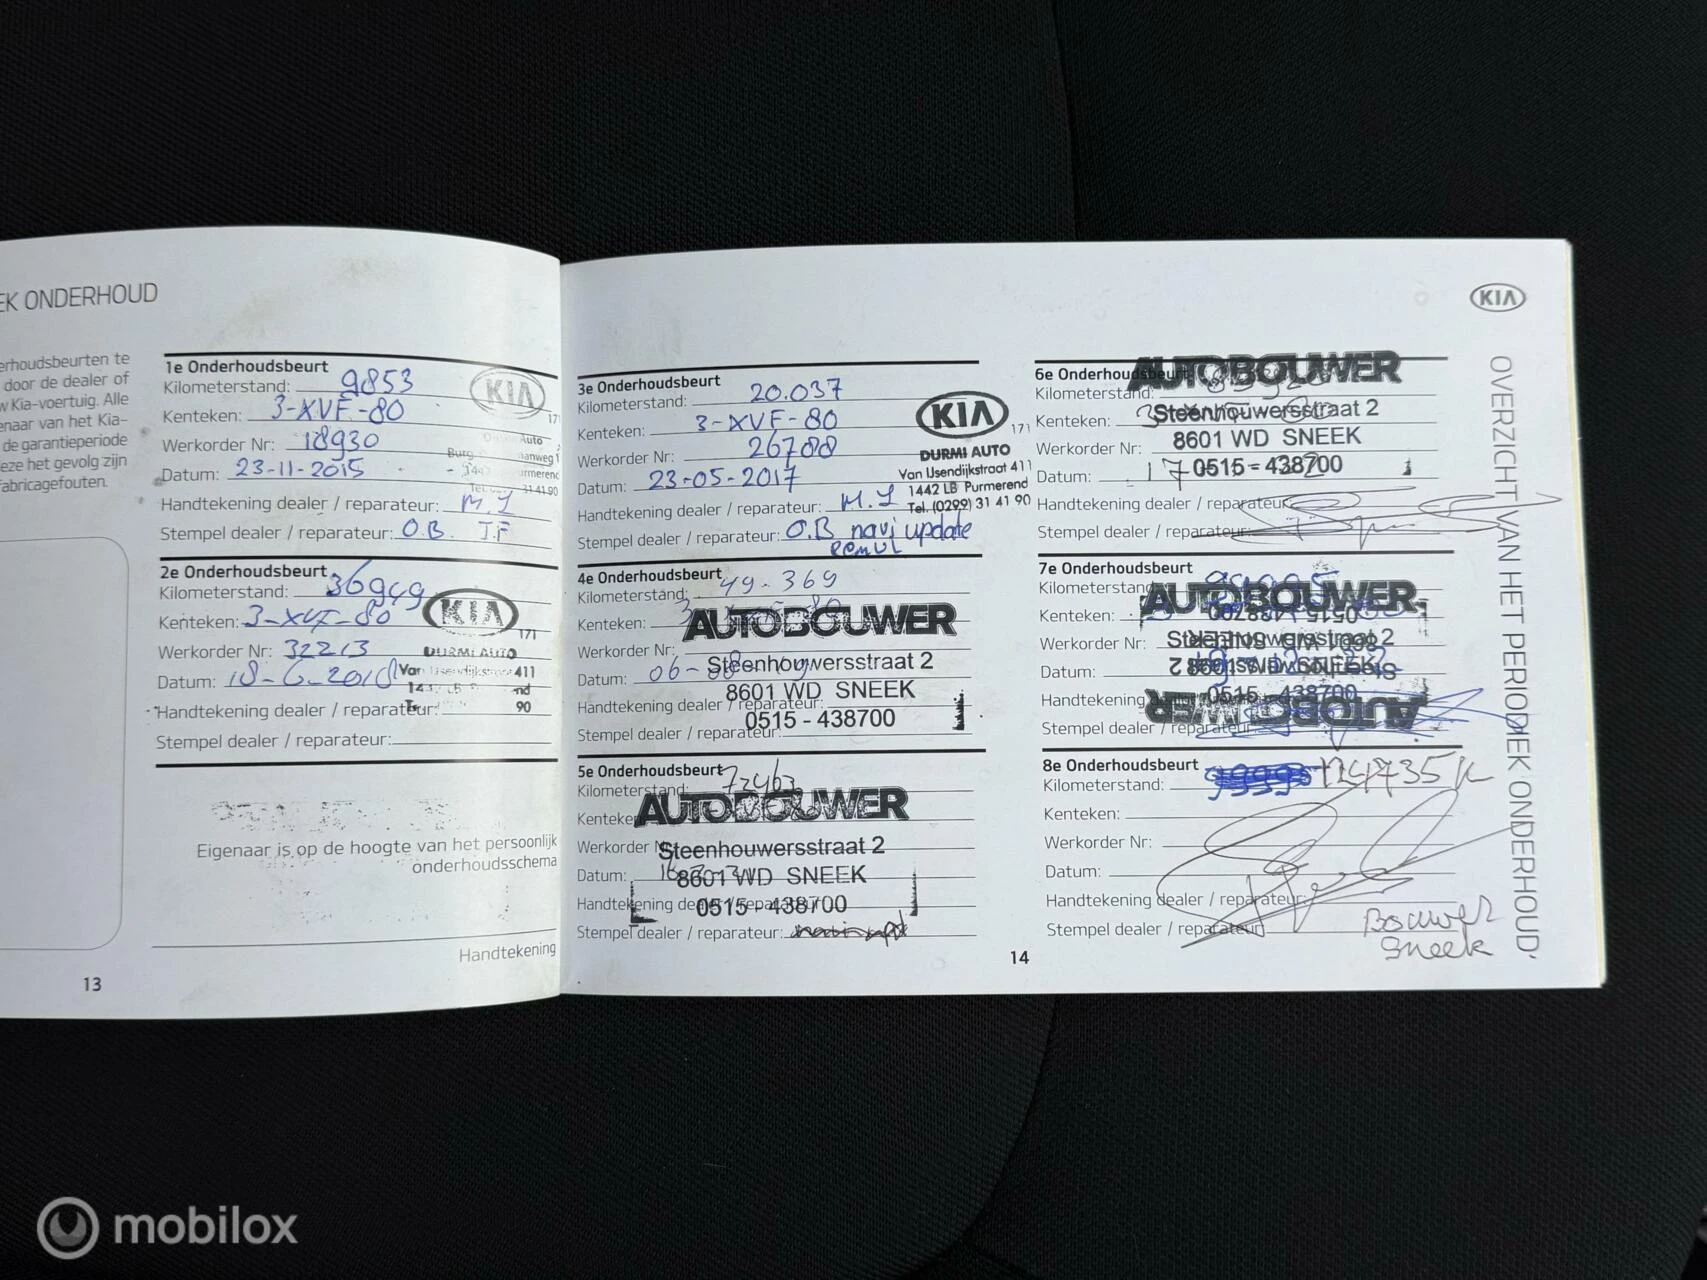 EK ONDERHOUD
erhoudsbeurten te
door de dealer of
w Kia-voertuig. Alle
enaar van het Kia-
de garantieperiode
eze het gevolg zijn
fabricagefouten.
1e Onderhoudsbeurt
Kilometerstand: 9853
Kenteken: 3-XVF-80
Werkorder Nr: 18930
Datum: 23-11-2015
Handtekening dealer / reparateur: M.J
Stempel dealer / reparateur: O.B. J.F
KIA
171
Auto
31 41 90
2e Onderhoudsbeurt
Kilometerstand: 36949
Kenteken: 3-XVF-80
Werkorder Nr: 32213
Datum: 18-6-2018
Handtekening dealer / reparateur:
Stempel dealer / reparateur:
KIA
171
DURMI AUTO
411
90
Eigenaar is op de hoogte van het persoonlijk
onderhoudsschema
Handtekening
13
3e Onderhoudsbeurt
Kilometerstand: 20.037
Kenteken: 3-XVF-80
Werkorder Nr: 26788
Datum: 23-05-2017
Handtekening dealer / reparateur: M.J
Stempel dealer / reparateur: O.B navi update
KIA
171
DURMI AUTO
Van IJsendijkstraat 411
1442 LB Purmerend
Tel. (0299) 31 41 90
4e Onderhoudsbeurt
Kilometerstand: 49.369
Kenteken:
Werkorder Nr:
Datum: 06-
Handtekening dealer / reparateur:
Stempel dealer / reparateur:
AUTOBOUWER
Steenhouwersstraat 2
8601 WD SNEEK
0515 - 438700
5e Onderhoudsbeurt
Kilometerstand:
Kenteken:
Werkorder Nr:
Datum:
Handtekening dealer / reparateur:
Stempel dealer / reparateur:
AUTOBOUWER
Steenhouwersstraat 2
8601 WD SNEEK
0515 - 438700
KIA
6e Onderhoudsbeurt
Kilometerstand:
Kenteken:
Werkorder Nr:
Datum: 17
Handtekening dealer / reparateur:
Stempel dealer / reparateur:
AUTOBOUWER
Steenhouwersstraat 2
8601 WD SNEEK
0515 - 438700
7e Onderhoudsbeurt
Kilometerstand:
Kenteken:
Werkorder Nr:
Datum:
Handtekening dealer / reparateur:
Stempel dealer / reparateur:
AUTOBOUWER
Steenhouwersstraat 2
8601 WD SNEEK
0515 - 438700
AUTOBOUWER
8e Onderhoudsbeurt
Kilometerstand: 124735 k
Kenteken:
Werkorder Nr:
Datum:
Handtekening dealer / reparateur:
Stempel dealer / reparateur:
Bouwer
Sneek
14
OVERZICHT VAN HET PERIODIEK ONDERHOUD
mobilox